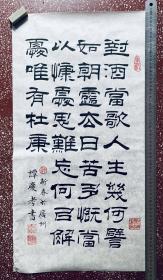 對酒當歌人生幾何譬
如朝露去日苦多慨當
以慷憂思難忘何以解
憂唯有杜康
新春於廣州
譚慶書